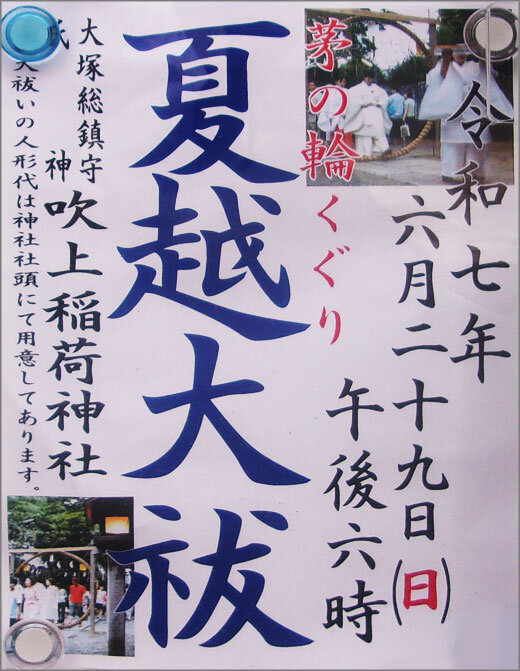 令和七年
六月二十九日(日)
午後六時
茅の輪くぐり
夏越大祓
大塚総鎮守
氏神 吹上稲荷神社
大祓いの人形代は神社社頭にて用意してあります。